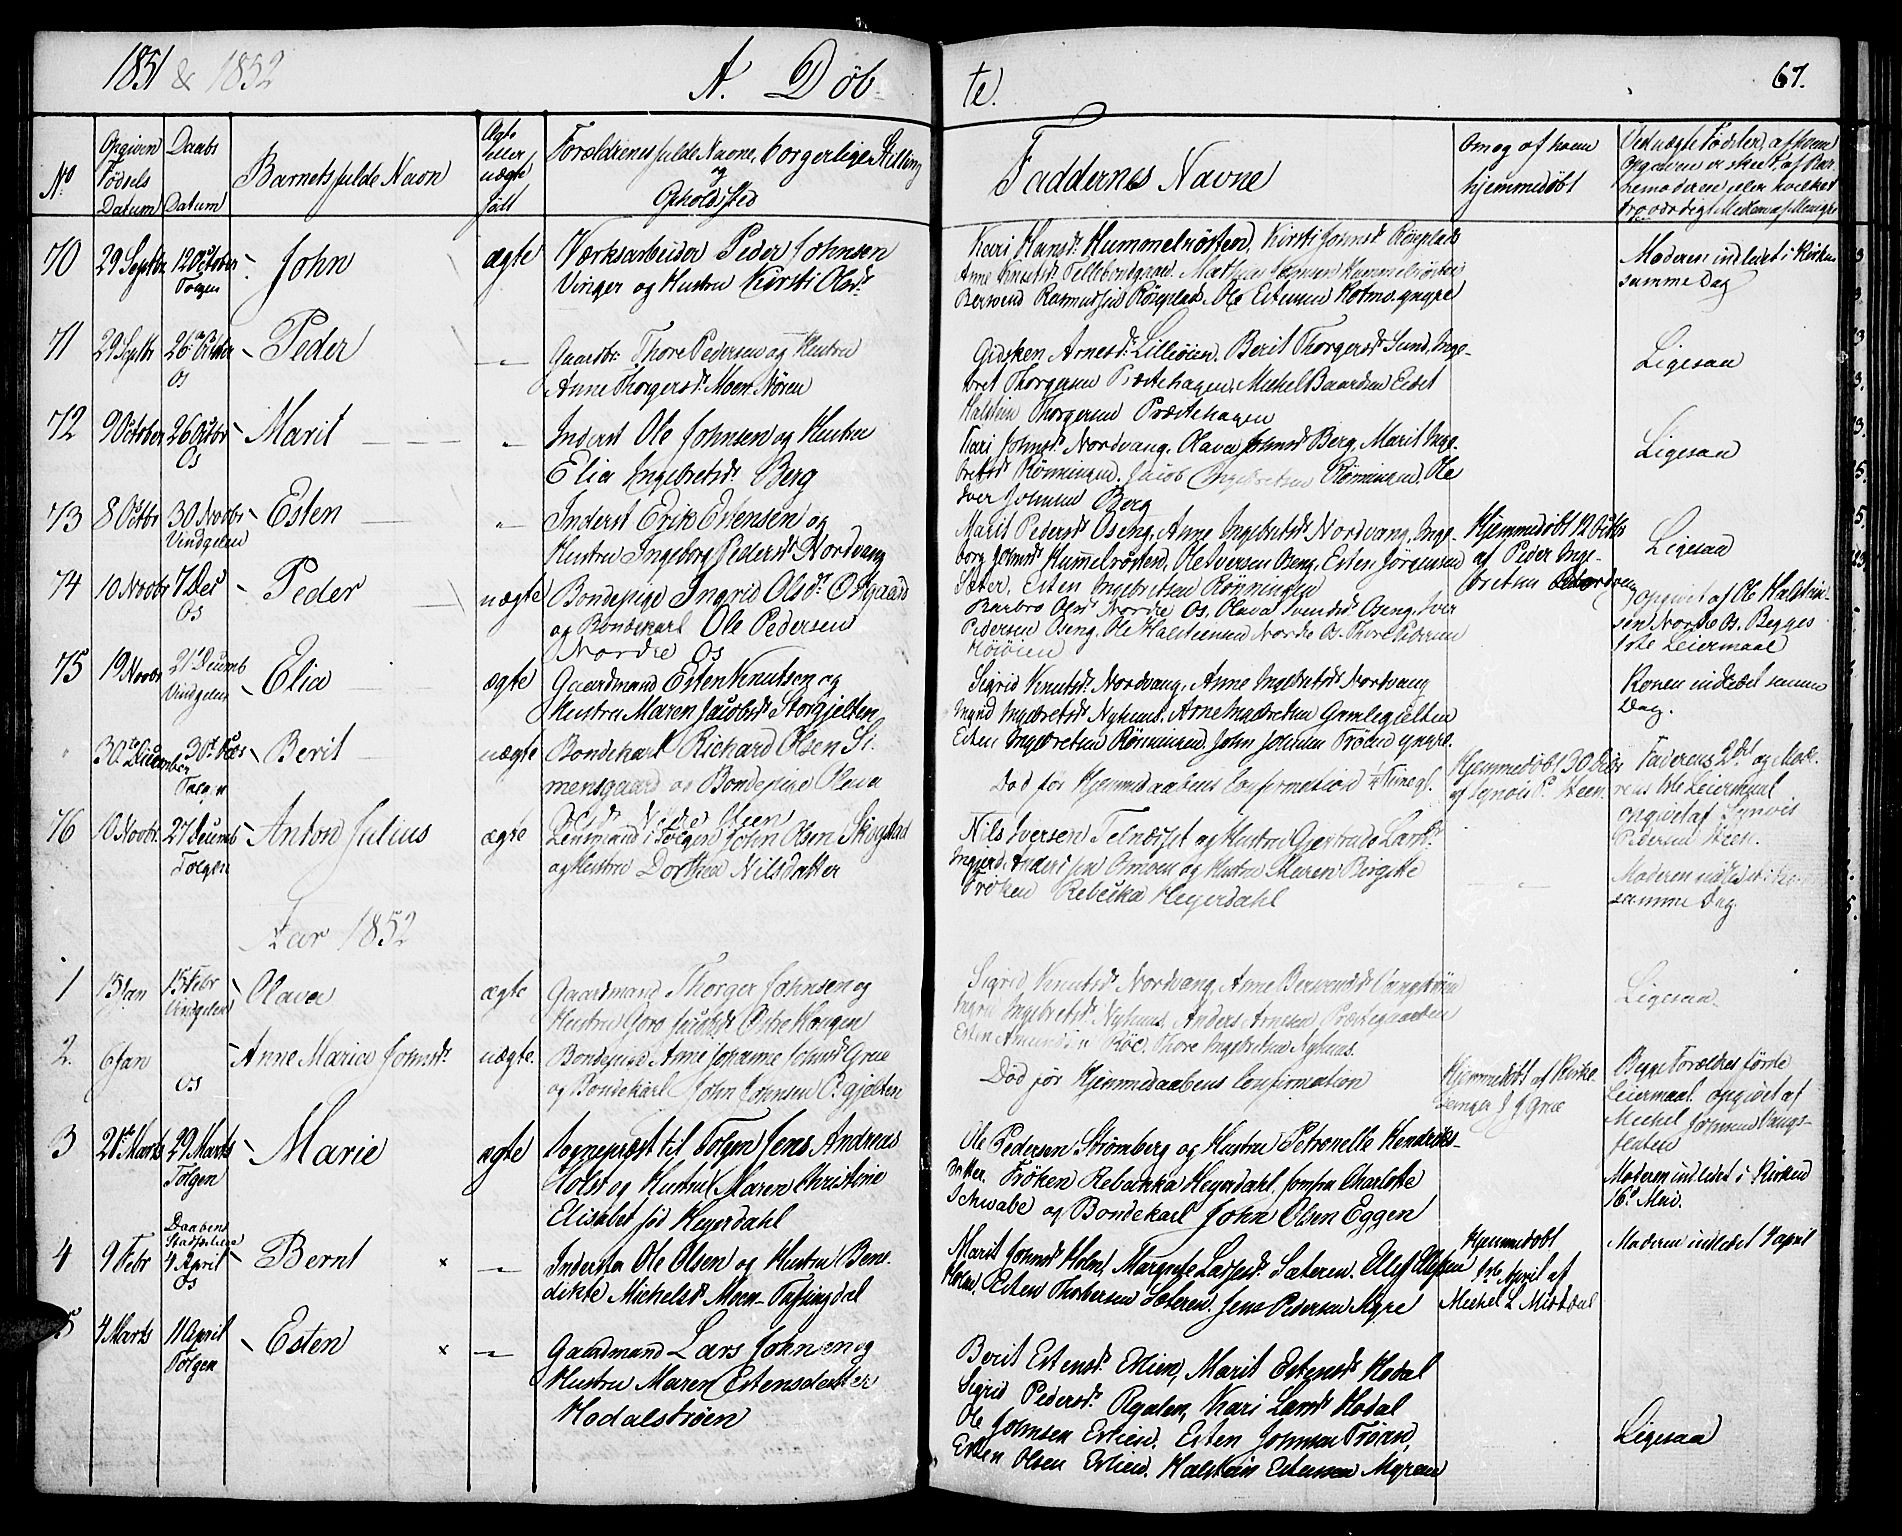 1851 & 1852
A. Døb-
te.
67.
No
Opgiven Fødsels Datum
Daabs Datum
Barnets fulde Navn
Ægte eller uægte født
Forældrenes fulde Navne, borgerlige Stilling og Opholdsted
Faddernes Navne
Om og af hvem hjemmedøbt
70
29 Septbr
12 October
Tolgen
John
ægte
Værksarbeider Peder Johnsen
Vinger og Hustru Kirsti Olsdr
Kari Hansdr Hummelvolden, Kirsti Johnsdr
Moderen indledet i Kirken
samme Dag
71
29 Septbr
26 Octbr
Os
Peder
Gaardbr. Thore Pedersen og Hustru
Anne Thorgersdr Moen Nören
Gidsken Arnesdr Lilleöien, Berit Thorgersdr Sund, Inge-
bret Thorgersen Præstehagen, Mickel Baardsen Eidet
Halstein Thorgersen Præstehagen
Ligesaa
72
9 October
26 Octbr
Os
Marit
Inderst Ole Johnsen og Hustru
Elia Ingebretsdr Berg
Kari Johnsdr Nordvang, Olava Johnsdr Berg, Marit Inge-
bretsdr Rönningen, Jacob Ingebretsen Rönningen, Ole
Iver Johnsen Berg
Ligesaa
73
8 Octbr
30 Novbr
Vindgelen
Esten
Inderst Erik Estensen og
Hustru Ingeborg Pedersdr Nordvang
Marit Pedersdr Oseng, Anne Ingebretsdr Nordvang, Inge-
borg Johnsdr Hummelvolden, Ole Iversen Oseng, Esten Jörgensen
Sæter, Esten Ingebretsen Rönningen
Hjemmedøbt 12 Octbr
af Peder Inge-
bretsen Nordvang
Ligesaa
74
10 Novbr
7 Dec
Os
Peder
uægte
Bondepige Ingrid Olsdr Østgaard
og Bondekarl Ole Pedersen
Nordre Os
Barbro Olsdr Nordre Os, Olava Iversdr Oseng, Iver
Pedersen Oseng, Ole Halsteensen Nordre Os, Thore Pedersen
opgivet af Ole Halstein-
sen Nordre Os. Begges
1ste Leiermaal
75
19 Novbr
21 Decemb
Vindgelen
Elia
ægte
Gaardmand Esten Knutsen og
Hustru Maren Jacobsdr Storgjelten
Sigrid Knutsdr Nordvang, Anne Ingebretsdr Nordvang
Ingrid Ingebretsdr Nyhuus, Arne Ingebretsen Gamlegjelten
Esten Ingebretsen Rönningen, John Johnsen Tröen yngre.
Konen indledet samme
Dag.
"
30te December
30 Dec
Tolgen
Berit
uægte
Bondekarl Richard Olsen Si-
mensgaard og Bondepige Oleva
Død før Hjemmedaabens Confirmation
Hjemmedøbt 30 Decbr
Faderens 2det og Mode-
rens 1ste Leiermaal
opgivet af
Pedersen Steen.
76
10 Novbr.
27 Decemb
Tolgen
Anton Julius
ægte
Lensmand i Tolgen John Olsen Skogstad
og Hustru Dorthea Nilsdatter
Nils Iversen Telneset og Hustru Gjertrude Larsdr
og Hustru Maren Birgitte
Fröken Rebekka Heyerdahl
Moderen indledet i Kirken
samme Dag
Aar 1852
1
15 Jan
15 Febr
Vindgelen
Olava
ægte
Gaardmand Thorger Johnsen og
Hustru Goro Jacobsdr Østre Haugen
Sigrid Knutsdr Nordvang, Anne
Ingrid Ingebretsdr Nyhuus, Anders Arnesen Præstegaarden
Esten Amundsen Röe, Thore Ingebretsen Nyhuus.
Ligesaa.
2.
6 Jan
Os
Anne Maria Johnsdr
uægte.
Bondepige Anne Johanne Johnsdr Grue
og Bondekarl John Johnsen
Død før Hjemmedaabens Confirmation
Hjemmedøbt af Kirke-
sanger J. J. Grue
Begge Forældres første
Leiermaal. opgivet af
Mickel Johnsen Vangs-
3
21 Marts
29 Marts
Tolgen
Marie
ægte
Sognepræst til Tolgen Jens Andreas
Holst og Hustru Maren Christine
Elisabet fød Heyerdahl
Ole Pedersen Strömberg og Hustru Petronelle Hendriks-
datter, Fröken Rebekka Heyerdahl, Jomfru Charlotte
Schwabe og Bondekarl John Olsen Eggen
Moderen indledet i Kirken
16 Mai.
4
9 Febr
Daabens Stadfæstelse
4 April
Os
Bernt
×
Inderst Ole Olsen og Hustru Bene-
dikte Mickelsdr Moen-Tufsingdal
Marit Johnsdr Holm, Margrete Larsdr Sæteren, Ellef Ellefsen
Holm, Esten Thorbersen Sæteren, Jens Pedersen Myre
Hjemmedøbt
1ste April af
Mickel L Midtdal
Moderen indledet 4 April
5
4 Marts
11 April
Tolgen
Esten
×
Gaardmand Lars Johnsen og
Hustru Maren Estensdatter
Hodalströen
Berit Estensdr Erlien, Marit Estensdr Hodal
Sigrid Pedersdr Rydlen, Kari Larsdr Hodal
Ole Johnsen Erlien, Esten Johnsen Tröen,
Esten Olsen Erlien, Halstein Estensen Myren
Ligesaa